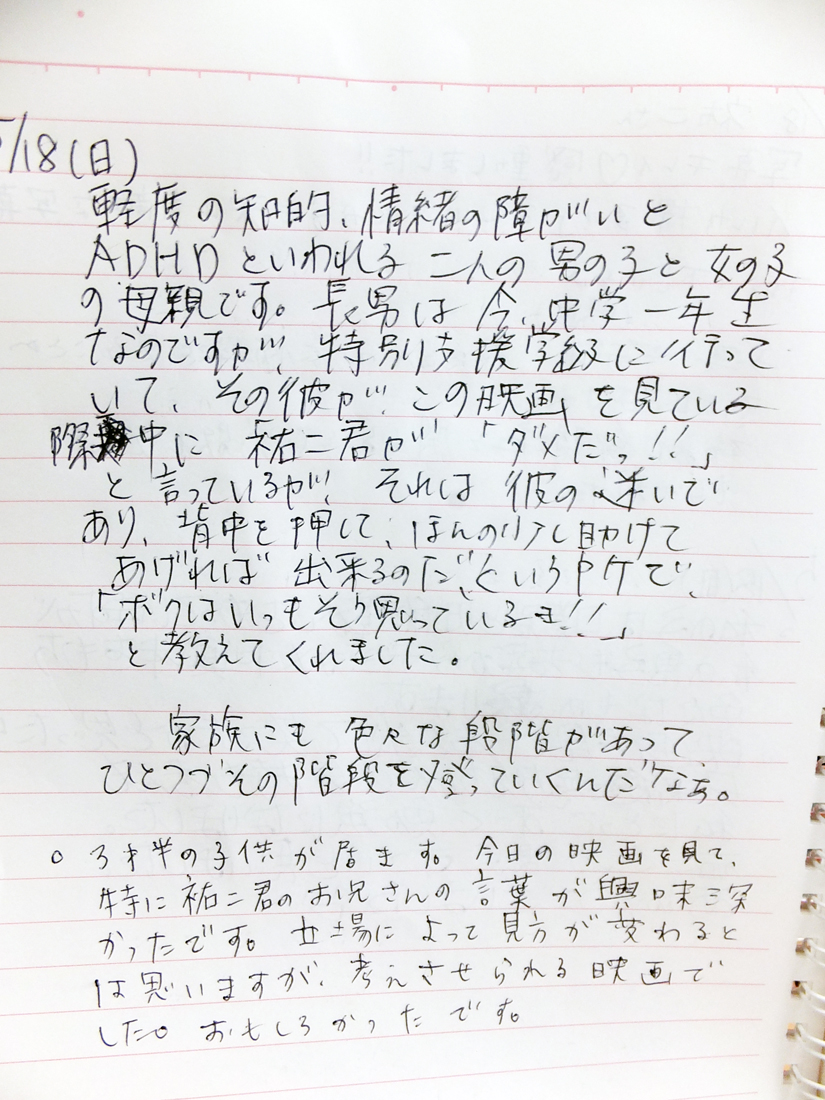 5/18(日)
軽度の知的、情緒の障がいと
ADHDといわれる 二人の男の子と女の子
の母親です。長男は今、中学一年生
なのですが、特別支援学級に行って
いて、その彼が、この映画を見ている
際中に 祐二君が「ダメだっ!!」
と言っているが、それは彼の迷いで
あり、背中を押して、ほんの少し助けて
あげれば 出来るのだ、というワケで、
「ボクはいつもそう思っているョ!!」
と教えてくれました。
家族にも色々な段階があって
ひとつづその階段を登っていくんだケなぁ。
○ 3才半の子供が居ます。今日の映画を見て、
特に祐二君のお兄さんの言葉が興味深
かったです。立場によって見方が変わると
は思いますが、考えさせられる映画で
した。おもしろかったです。